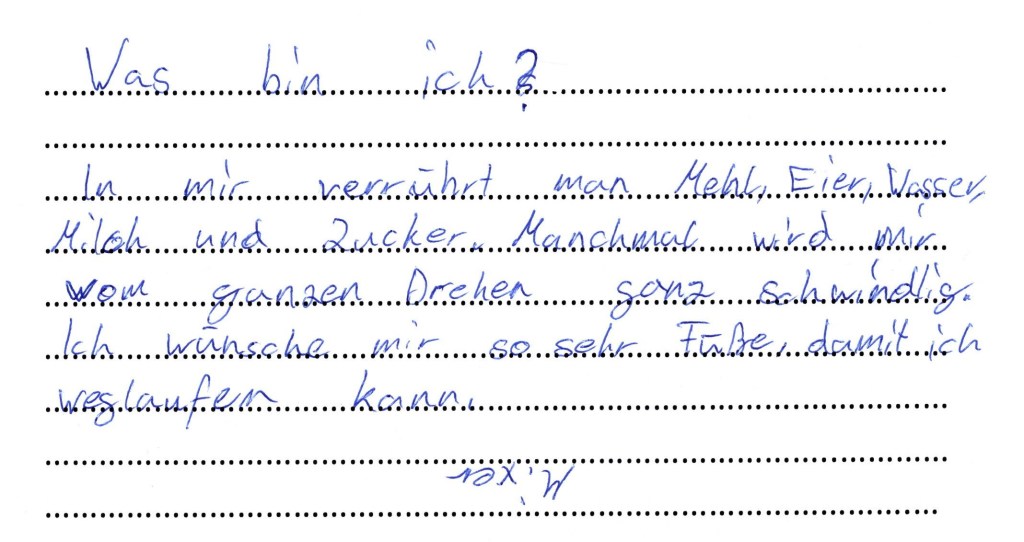 Was bin ich?
In mir verrührt man Mehl, Eier, Wasser,
Milch und Zucker. Manchmal wird mir
vom ganzen Drehen ganz schwindlig.
Ich wünsche mir so sehr Füße, damit ich
weglaufen kann.
Mixer